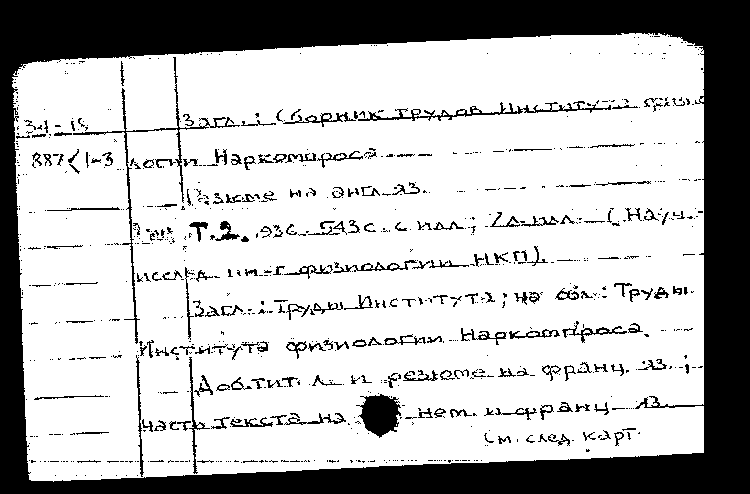 34-15 Загл.: Сборник трудов Института физио
887<1-3 логии Наркомпроса
Резюме на англ. яз.
Т.2. 936. 543 с. с илл; 2 л. илл. (Науч.-
исслед. ин-т физиологии НКП).
Загл.: Труды Института; на обл.: Труды
Института физиологии Наркомпроса.
Доб. тит. л. и резюме на франц. яз.;
части текста на нем. и франц. яз.
См. след. карт.